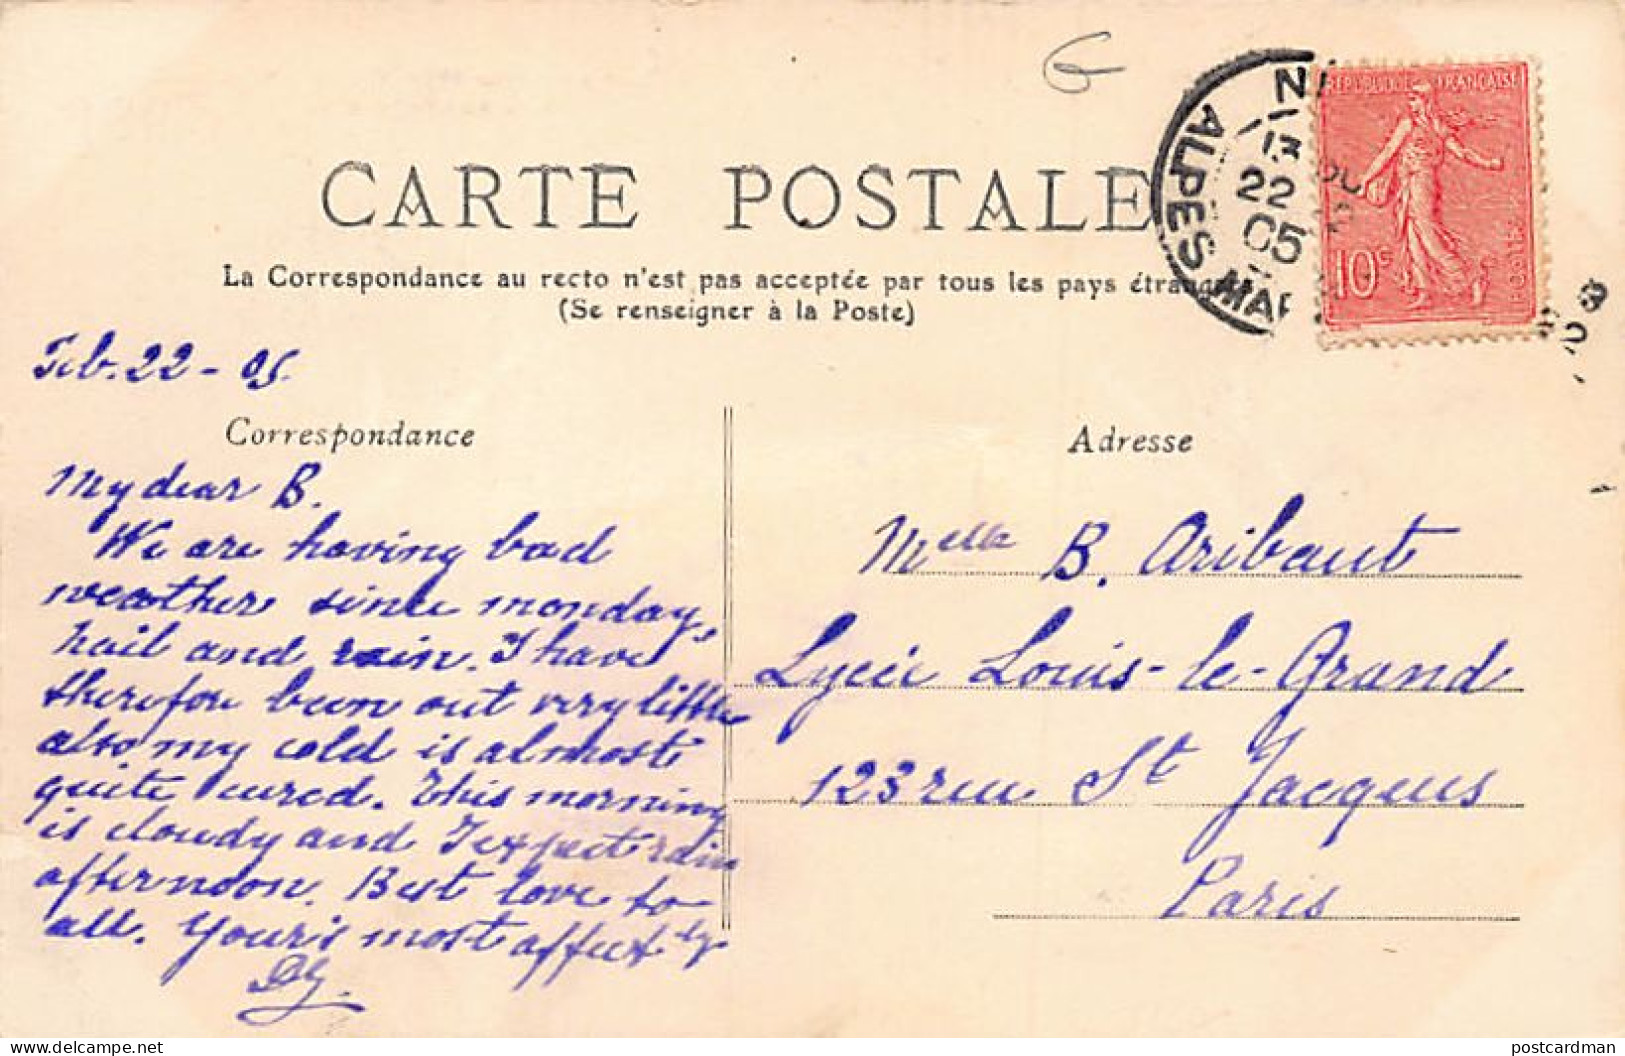 CARTE POSTALE
La Correspondance au recto n'est pas acceptée par tous les pays étrangers
(Se renseigner à la Poste)
ALPES MAR
22
05
RÉPUBLIQUE FRANÇAISE
10c
POSTES
Feb. 22 - 05.
Correspondance
My dear B.
We are having bad
weather since monday,
hail and rain. I have
therefore been out very little
also my cold is almost
quite cured. This morning
is cloudy and I expect rain
afternoon. Best love to
all. Your's most affectly
Adresse
Melle B. Aribaut
Lycée Louis-le-Grand
123 rue St Jacques
Paris
postcardman